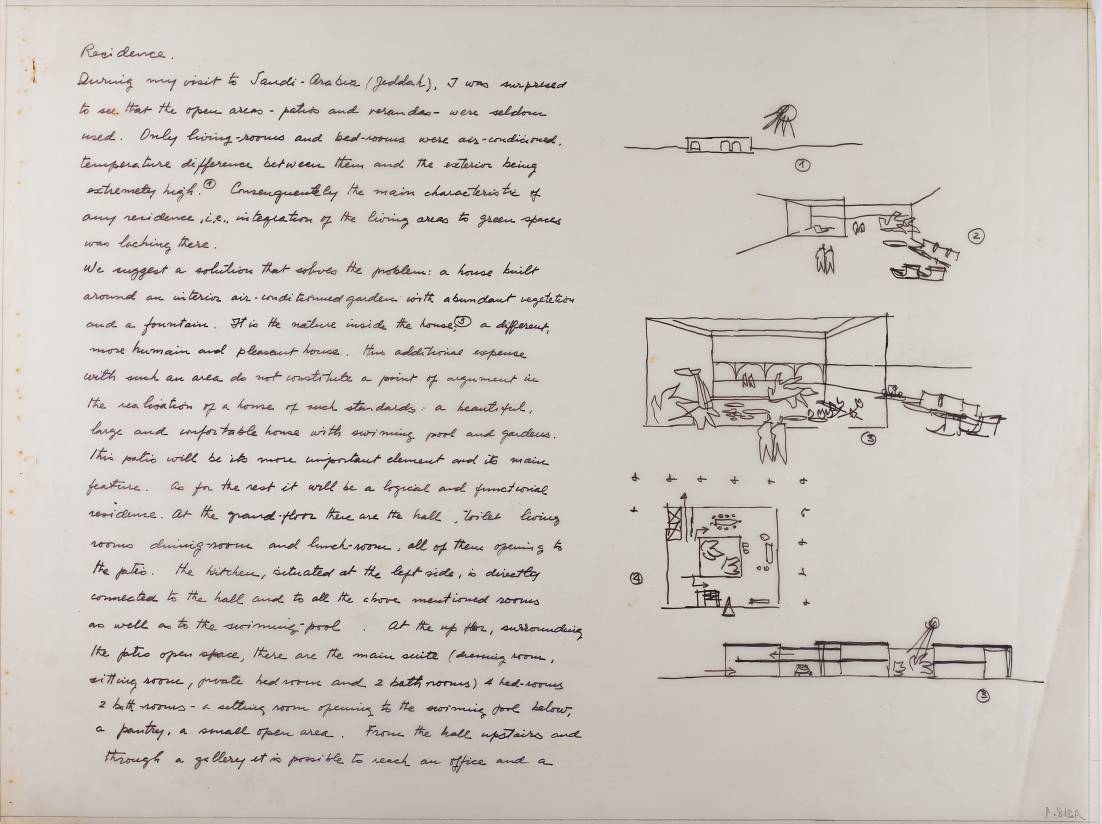 Residence.
During my visit to Saudi-Arabia (Jeddah), I was surprised
to see that the open areas - patios and verandas - were seldom
used. Only living-rooms and bed-rooms were air-condicioned.
temperature difference between them and the exterior being
extremety high. ① Consenquentely the main characteristic of
any residence, i.e., integration of the living areas to green spaces
was lacking there.
We suggest a solution that solves the problem: a house built
around an interior air-conditionned garden with abundant vegetation
and a fountain. It is the nature inside the house, ③ a different,
more humain and pleasent house. The additional expense
with such an area do not constitute a point of argument in
the realisation of a house of such standards: a beautiful,
large and confortable house with swiming pool and gardens.
This patio will be its more important element and its main
feature. As for the rest it will be a logical and functional
residence. At the grand-floor there are the hall, toilet living
rooms dinning-room and lunch-room, all of them opening to
the patio. The kitchen, situated at the left side, is directly
connected to the hall and to all the above mentioned rooms
as well as to the swiming-pool. At the up flor, surrounding
the patio open space, there are the main suite (dressing room,
sitting room, private bed room and 2 bath rooms) 4 bed-rooms
2 bath-rooms - a sitting room opening to the swiming pool below,
a pantry, a small open area. From the hall upstairs and
through a gallery it is possible to reach an office and a
①
②
③
④
③